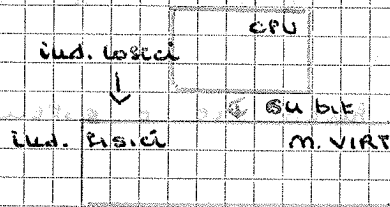 CPU
ind. logici
64 bit
ind. fisici M. VIRT